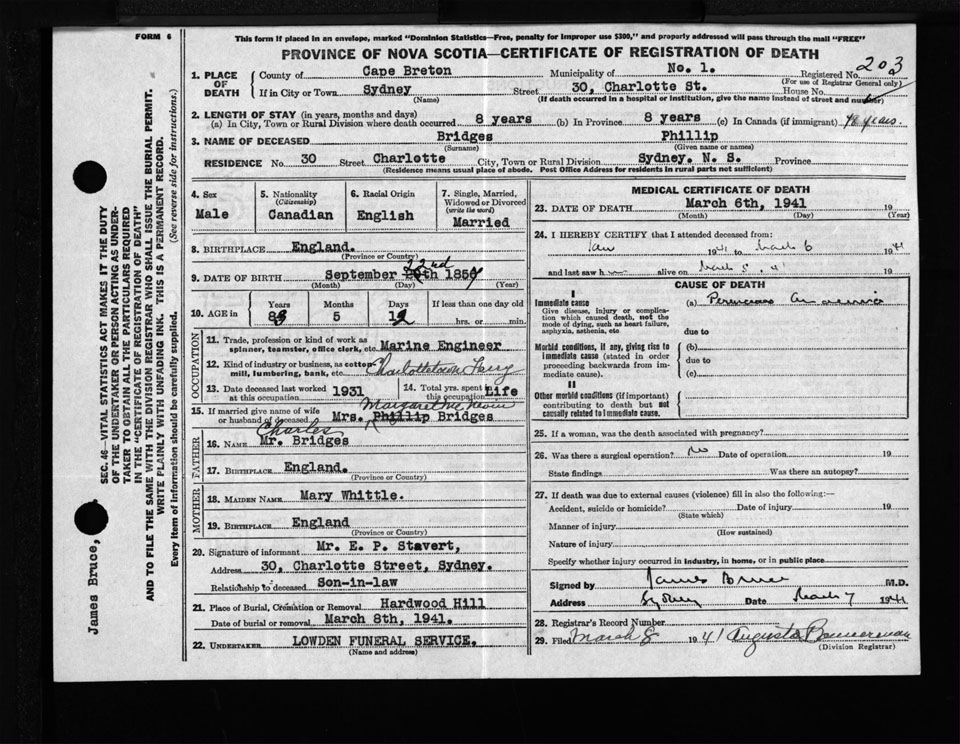 FORM 6
This form if placed in an envelope, marked "Dominion Statistics—Free, penalty for improper use $300," and properly addressed will pass through the mail "FREE"
PROVINCE OF NOVA SCOTIA—CERTIFICATE OF REGISTRATION OF DEATH
1. PLACE OF DEATH County of Cape Breton Municipality of No. 1. Registered No. 203
(For use of Registrar General only)
If in City or Town Sydney Street 30, Charlotte St. House No.
(Name) (If death occurred in a hospital or institution, give the name instead of street and number)
2. LENGTH OF STAY (in years, months and days)
(a) In City, Town or Rural Division where death occurred 8 years (b) In Province 8 years (c) In Canada (if immigrant) years.
3. NAME OF DECEASED Bridges Phillip
(Surname) (Given name or names)
RESIDENCE No. 30 Street Charlotte City, Town or Rural Division Sydney. N. S. Province
(Residence means usual place of abode. Post Office Address for residents in rural parts not sufficient)
4. Sex
Male
5. Nationality
(Citizenship)
Canadian
6. Racial Origin
English
7. Single, Married, Widowed or Divorced
(write the word)
Married
8. BIRTHPLACE England.
(Province or Country)
22nd
9. DATE OF BIRTH September th 185
(Month) (Day) (Year)
10. AGE in Years Months Days If less than one day old
8 5 12 hrs. or min.
OCCUPATION
11. Trade, profession or kind of work as spinner, teamster, office clerk, etc. Marine Engineer
12. Kind of industry or business, as cotton-mill, lumbering, bank, etc. Charlottetown Ferry
13. Date deceased last worked at this occupation 1931
14. Total yrs. spent in this occupation Life
15. If married give name of wife or husband of deceased Mrs. Phillip Bridges
Margaret
FATHER
Charles
16. NAME Mr. Bridges
17. BIRTHPLACE England.
(Province or Country)
MOTHER
18. MAIDEN NAME Mary Whittle.
19. BIRTHPLACE England
(Province or Country)
20. Signature of informant Mr. E. P. Stavert,
Address 30, Charlotte Street, Sydney.
Relationship to deceased Son-in-law
21. Place of Burial, Cremation or Removal Hardwood Hill
Date of burial or removal March 8th, 1941.
22. UNDERTAKER LOWDEN FUNERAL SERVICE.
(Name and address)
MEDICAL CERTIFICATE OF DEATH
23. DATE OF DEATH March 6th, 1941 19
(Month) (Day) (Year)
24. I HEREBY CERTIFY that I attended deceased from:
Jan 1941 to March 6 1941
and last saw h alive on March 5. 41 19
CAUSE OF DEATH
I
Immediate cause (a) Pernicious
Give disease, injury or complication which caused death, not the mode of dying, such as heart failure, asphyxia, asthenia, etc
due to
Morbid conditions, if any, giving rise to immediate cause (stated in order proceeding backwards from immediate cause).
(b)
due to
(c)
II
Other morbid conditions (if important) contributing to death but not causally related to immediate cause.
25. If a woman, was the death associated with pregnancy?
26. Was there a surgical operation? no Date of operation 19
State findings Was there an autopsy?
27. If death was due to external causes (violence) fill in also the following:—
Accident, suicide or homicide? Date of injury 19
(State which)
Manner of injury
(How sustained)
Nature of injury
Specify whether injury occurred in industry, in home, or in public place
Signed by James Bruce M.D.
Address Sydney Date March 7 1941
28. Registrar's Record Number
29. Filed March 8 1941 Augusta Bannerman
(Division Registrar)
James Bruce,
SEC. 46—VITAL STATISTICS ACT MAKES IT THE DUTY
OF THE UNDERTAKER OR PERSON ACTING AS UNDER-
TAKER TO OBTAIN ALL THE PARTICULARS REQUIRED
IN THE "CERTIFICATE OF REGISTRATION OF DEATH"
AND TO FILE THE SAME WITH THE DIVISION REGISTRAR WHO SHALL ISSUE THE BURIAL PERMIT.
WRITE PLAINLY WITH UNFADING INK. THIS IS A PERMANENT RECORD.
Every item of information should be carefully supplied. (See reverse side for instructions.)